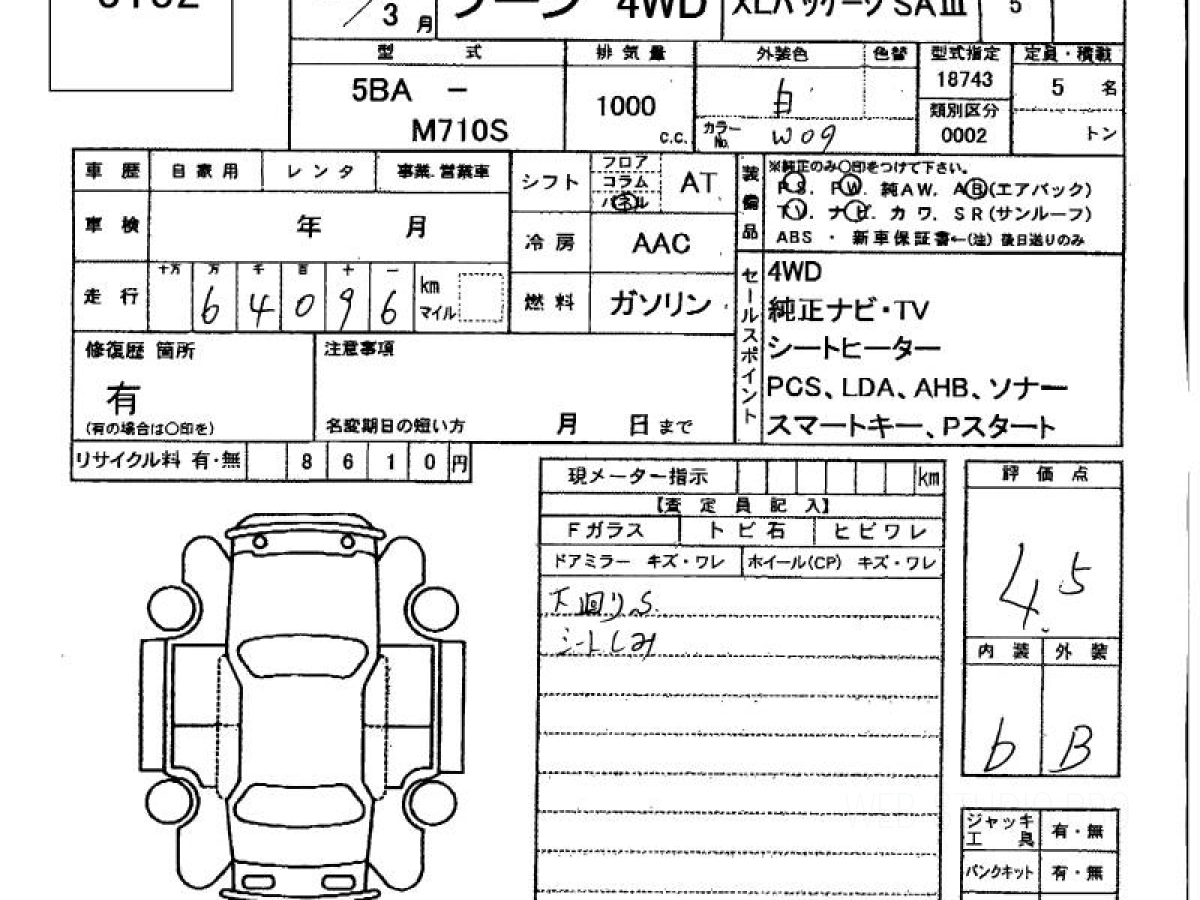 3 月
4WD
SAⅢ
5
型 式
排 気 量
外装色
色替
型式指定
定員・積載
5BA －
M710S
1000
c.c.
白
カラーNo.
W09
18743
類別区分
0002
5 名
トン
車 歴
自 家 用
レ ン タ
事業.営業車
シフト
フロア
コラム
パネル
AT
装備品
※純正のみ〇印をつけて下さい。
PS. PW. 純AW. AB(エアバック)
TV. ナビ. カワ. SR(サンルーフ)
ABS ・ 新車保証書←(注) 後日送りのみ
車 検
年 月
冷 房
AAC
走 行
十万 万 千 百 十 一
6 4 0 9 6
km
マイル
燃 料
ガソリン
セールスポイント
4WD
純正ナビ・TV
シートヒーター
PCS、LDA、AHB、ソナー
スマートキー、Pスタート
修復歴 箇所
有
(有の場合は〇印を)
注意事項
名変期日の短い方 月 日まで
リサイクル料 有・無 8 6 1 0 円
現メーター指示 km
【査 定 員 記 入】
Fガラス ト ビ 石 ヒ ビ ワ レ
ドアミラー キズ・ワレ ホイール(CP) キズ・ワレ
下回りS.
シートしみ
評 価 点
4.5
内 装 外 装
b B
ジャッキ
工 具
有・無
パンクキット 有・無